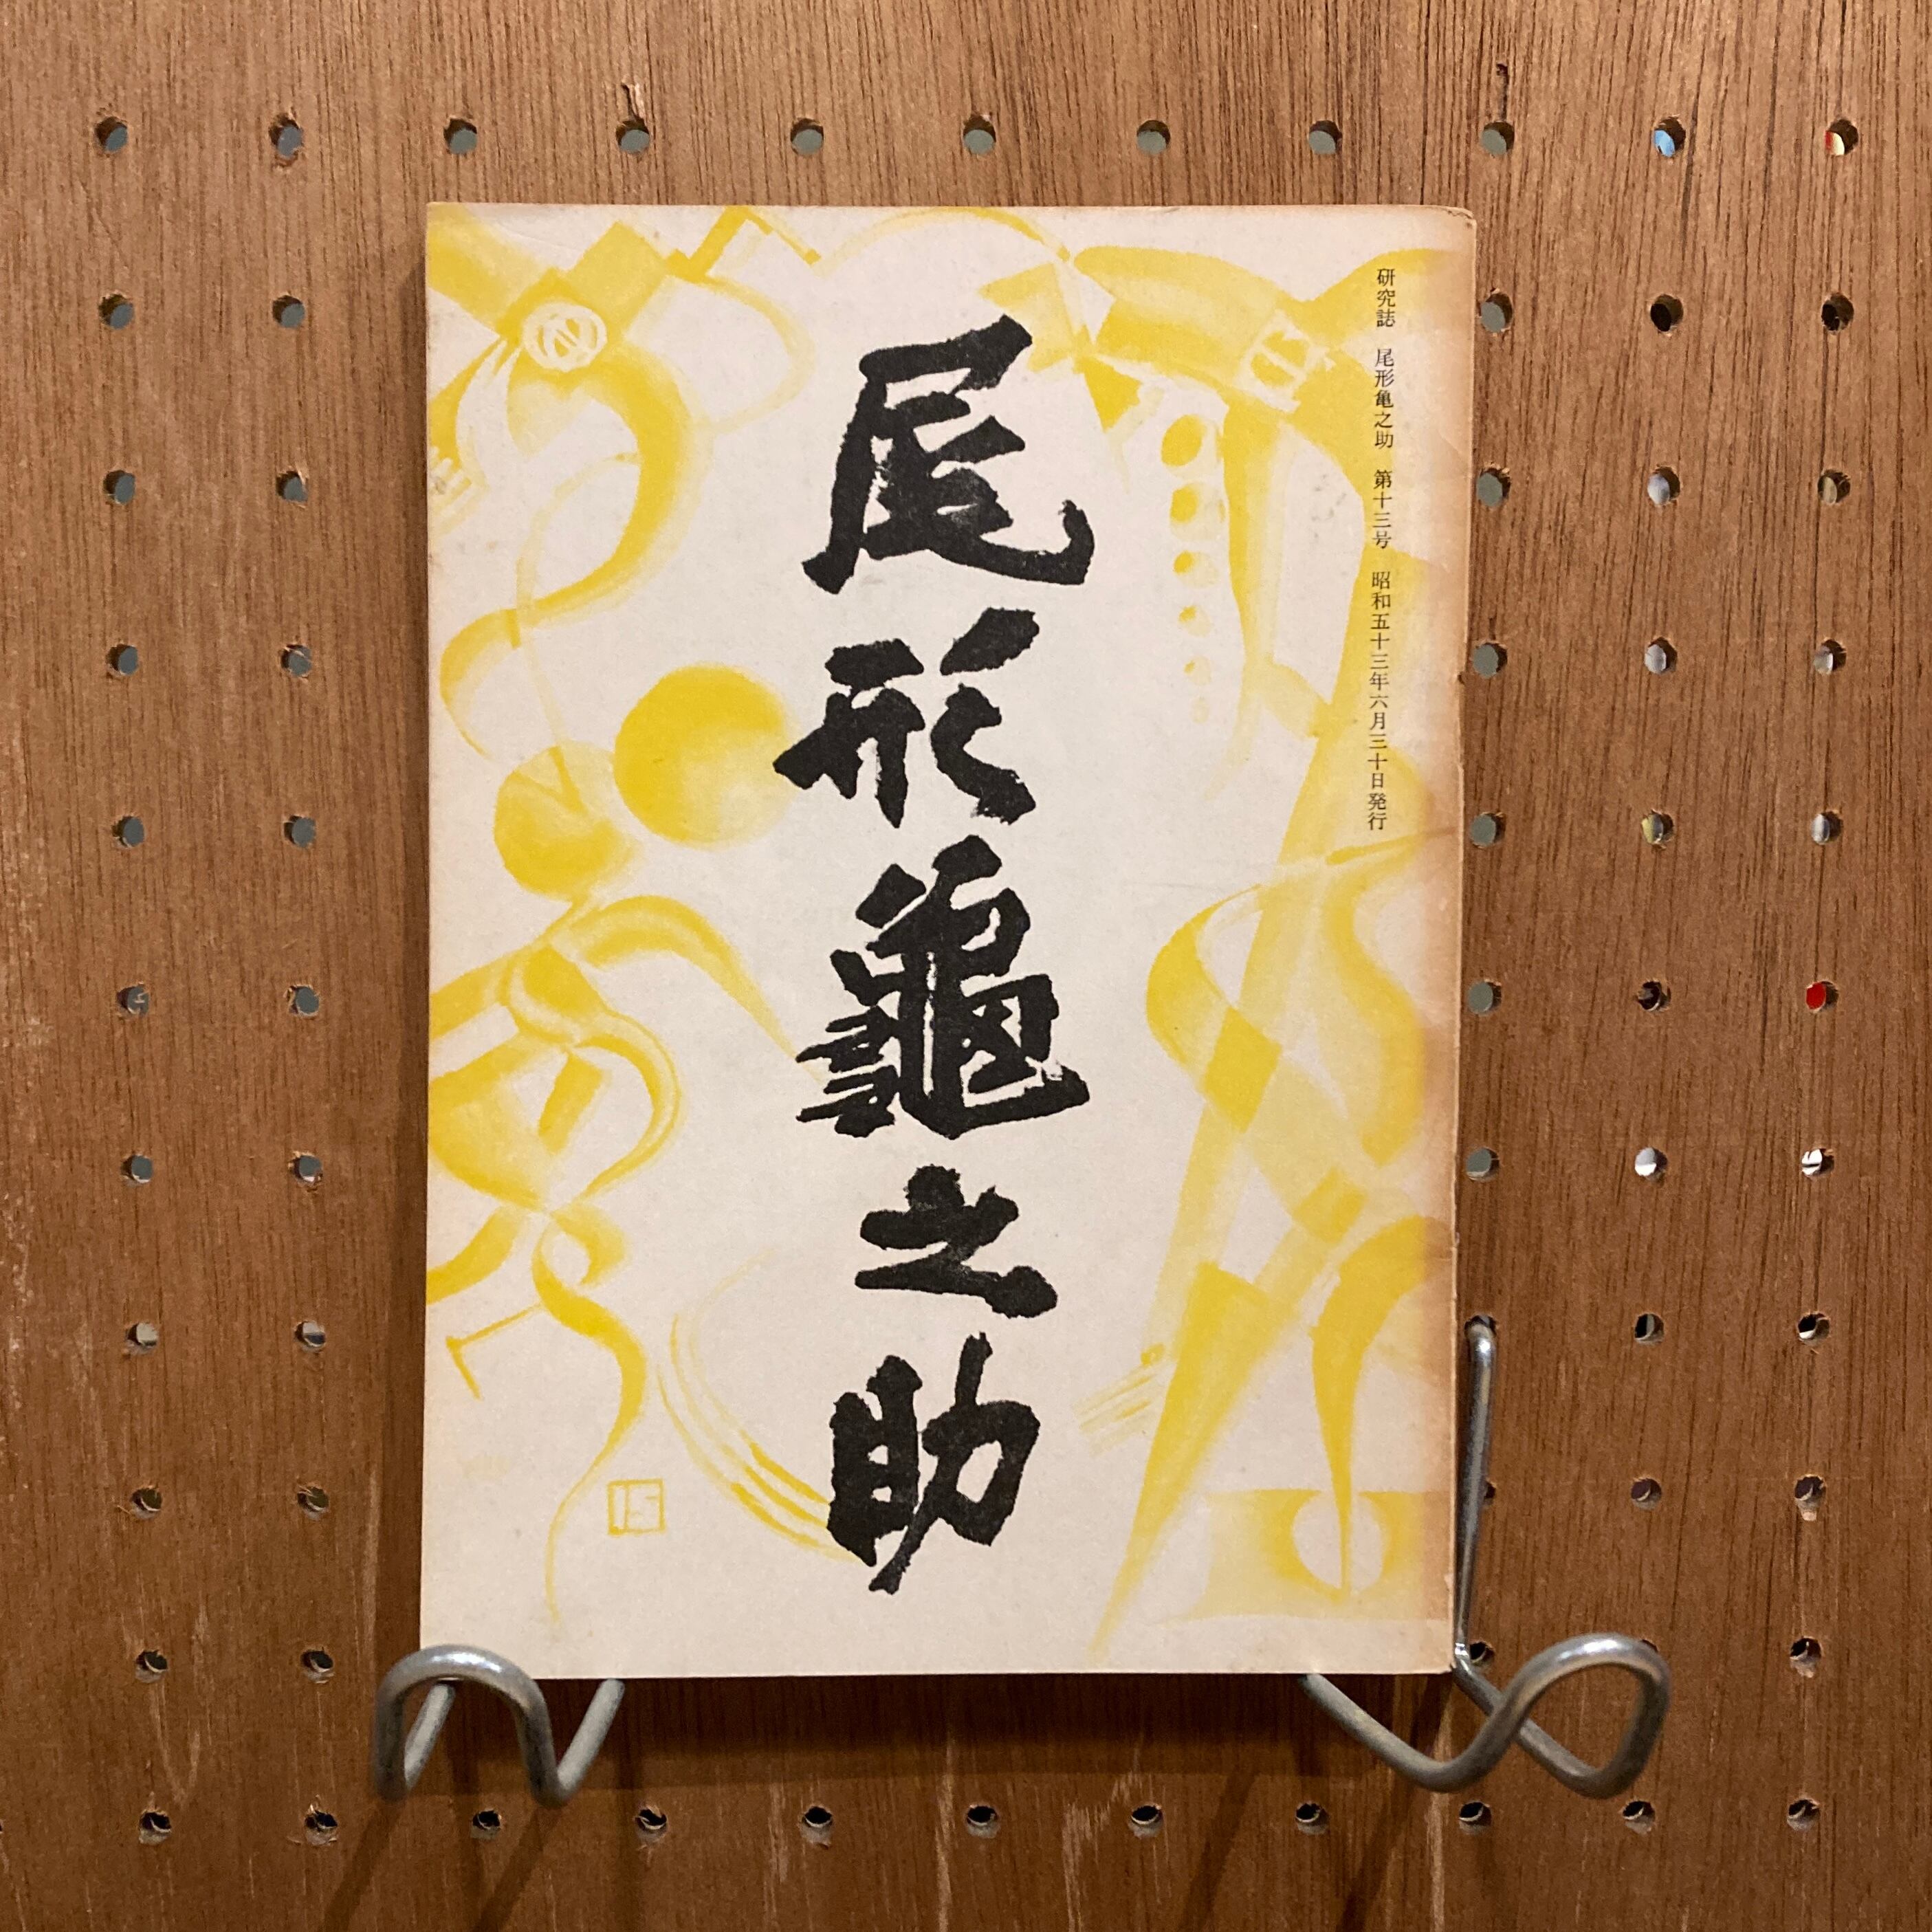 研究誌　尾形亀之助　第十三号　昭和五十三年六月三十日発行
尾形龜之助